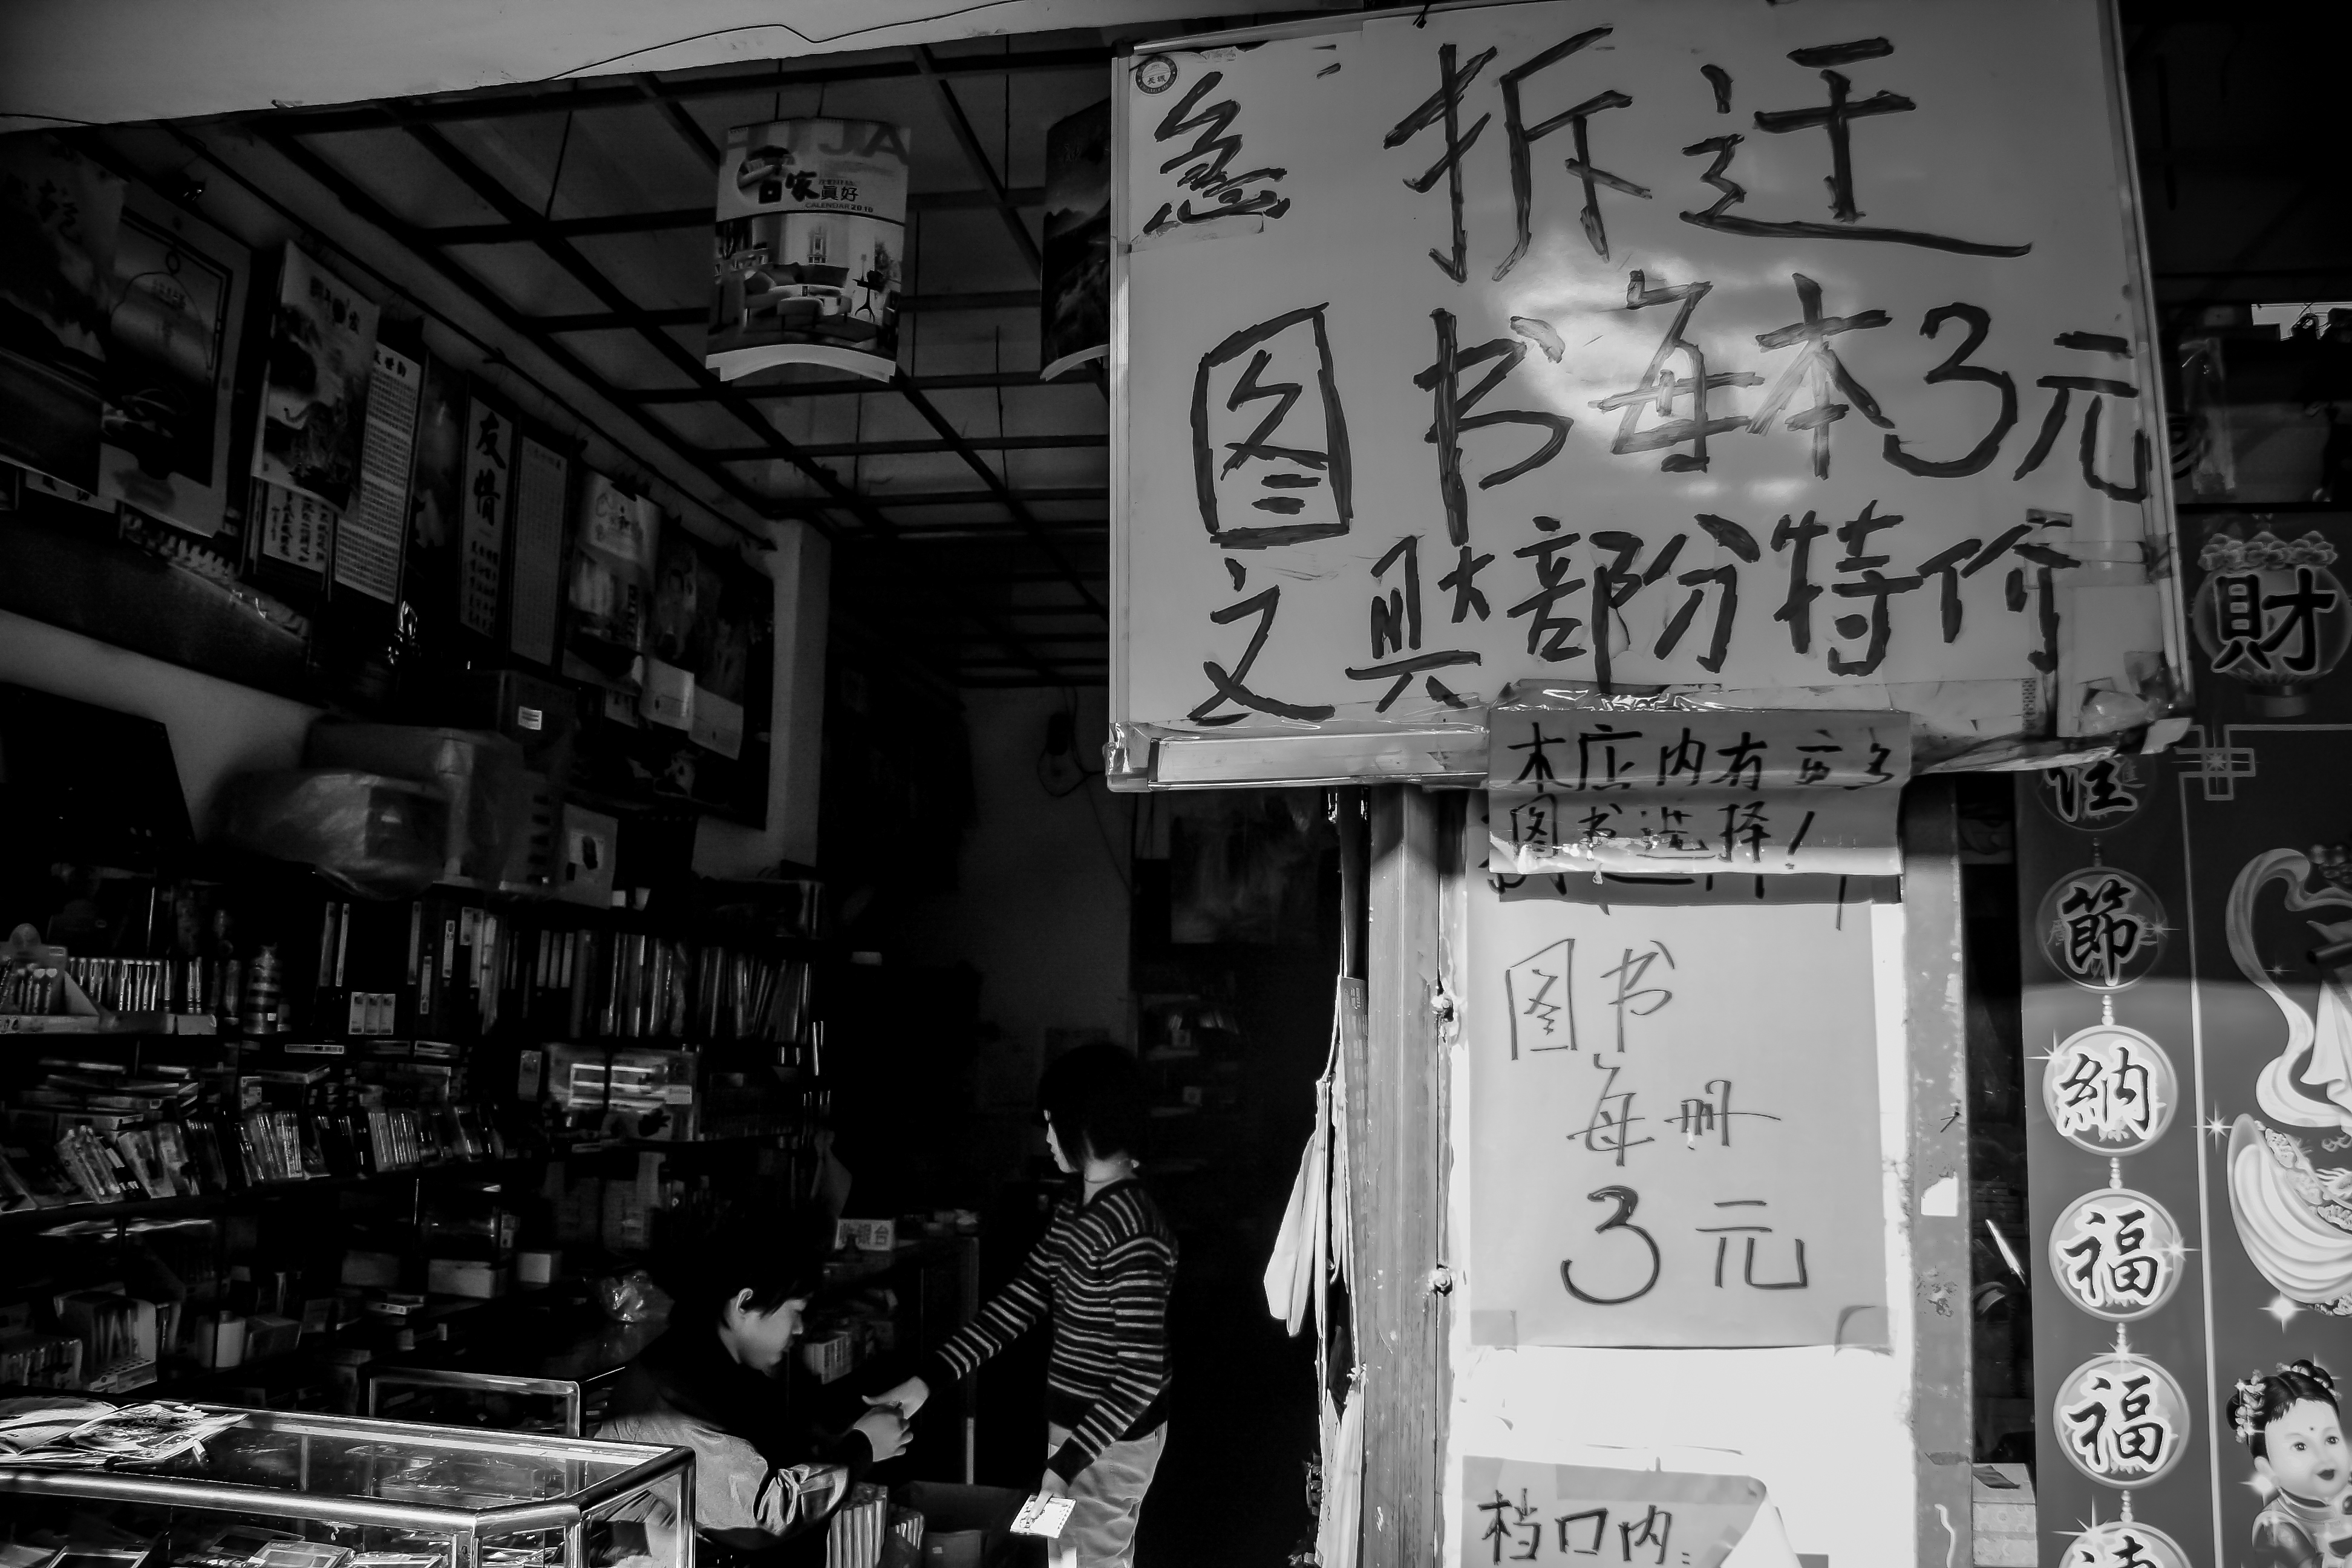 急 拆迁
图书每本3元
文具部份特价
本店内有许多
图书选择！
图书
每册
3元
档口内:
財
佳
節
納
福
福
吉家
真好
CALENDAR 2010
友情
收银台